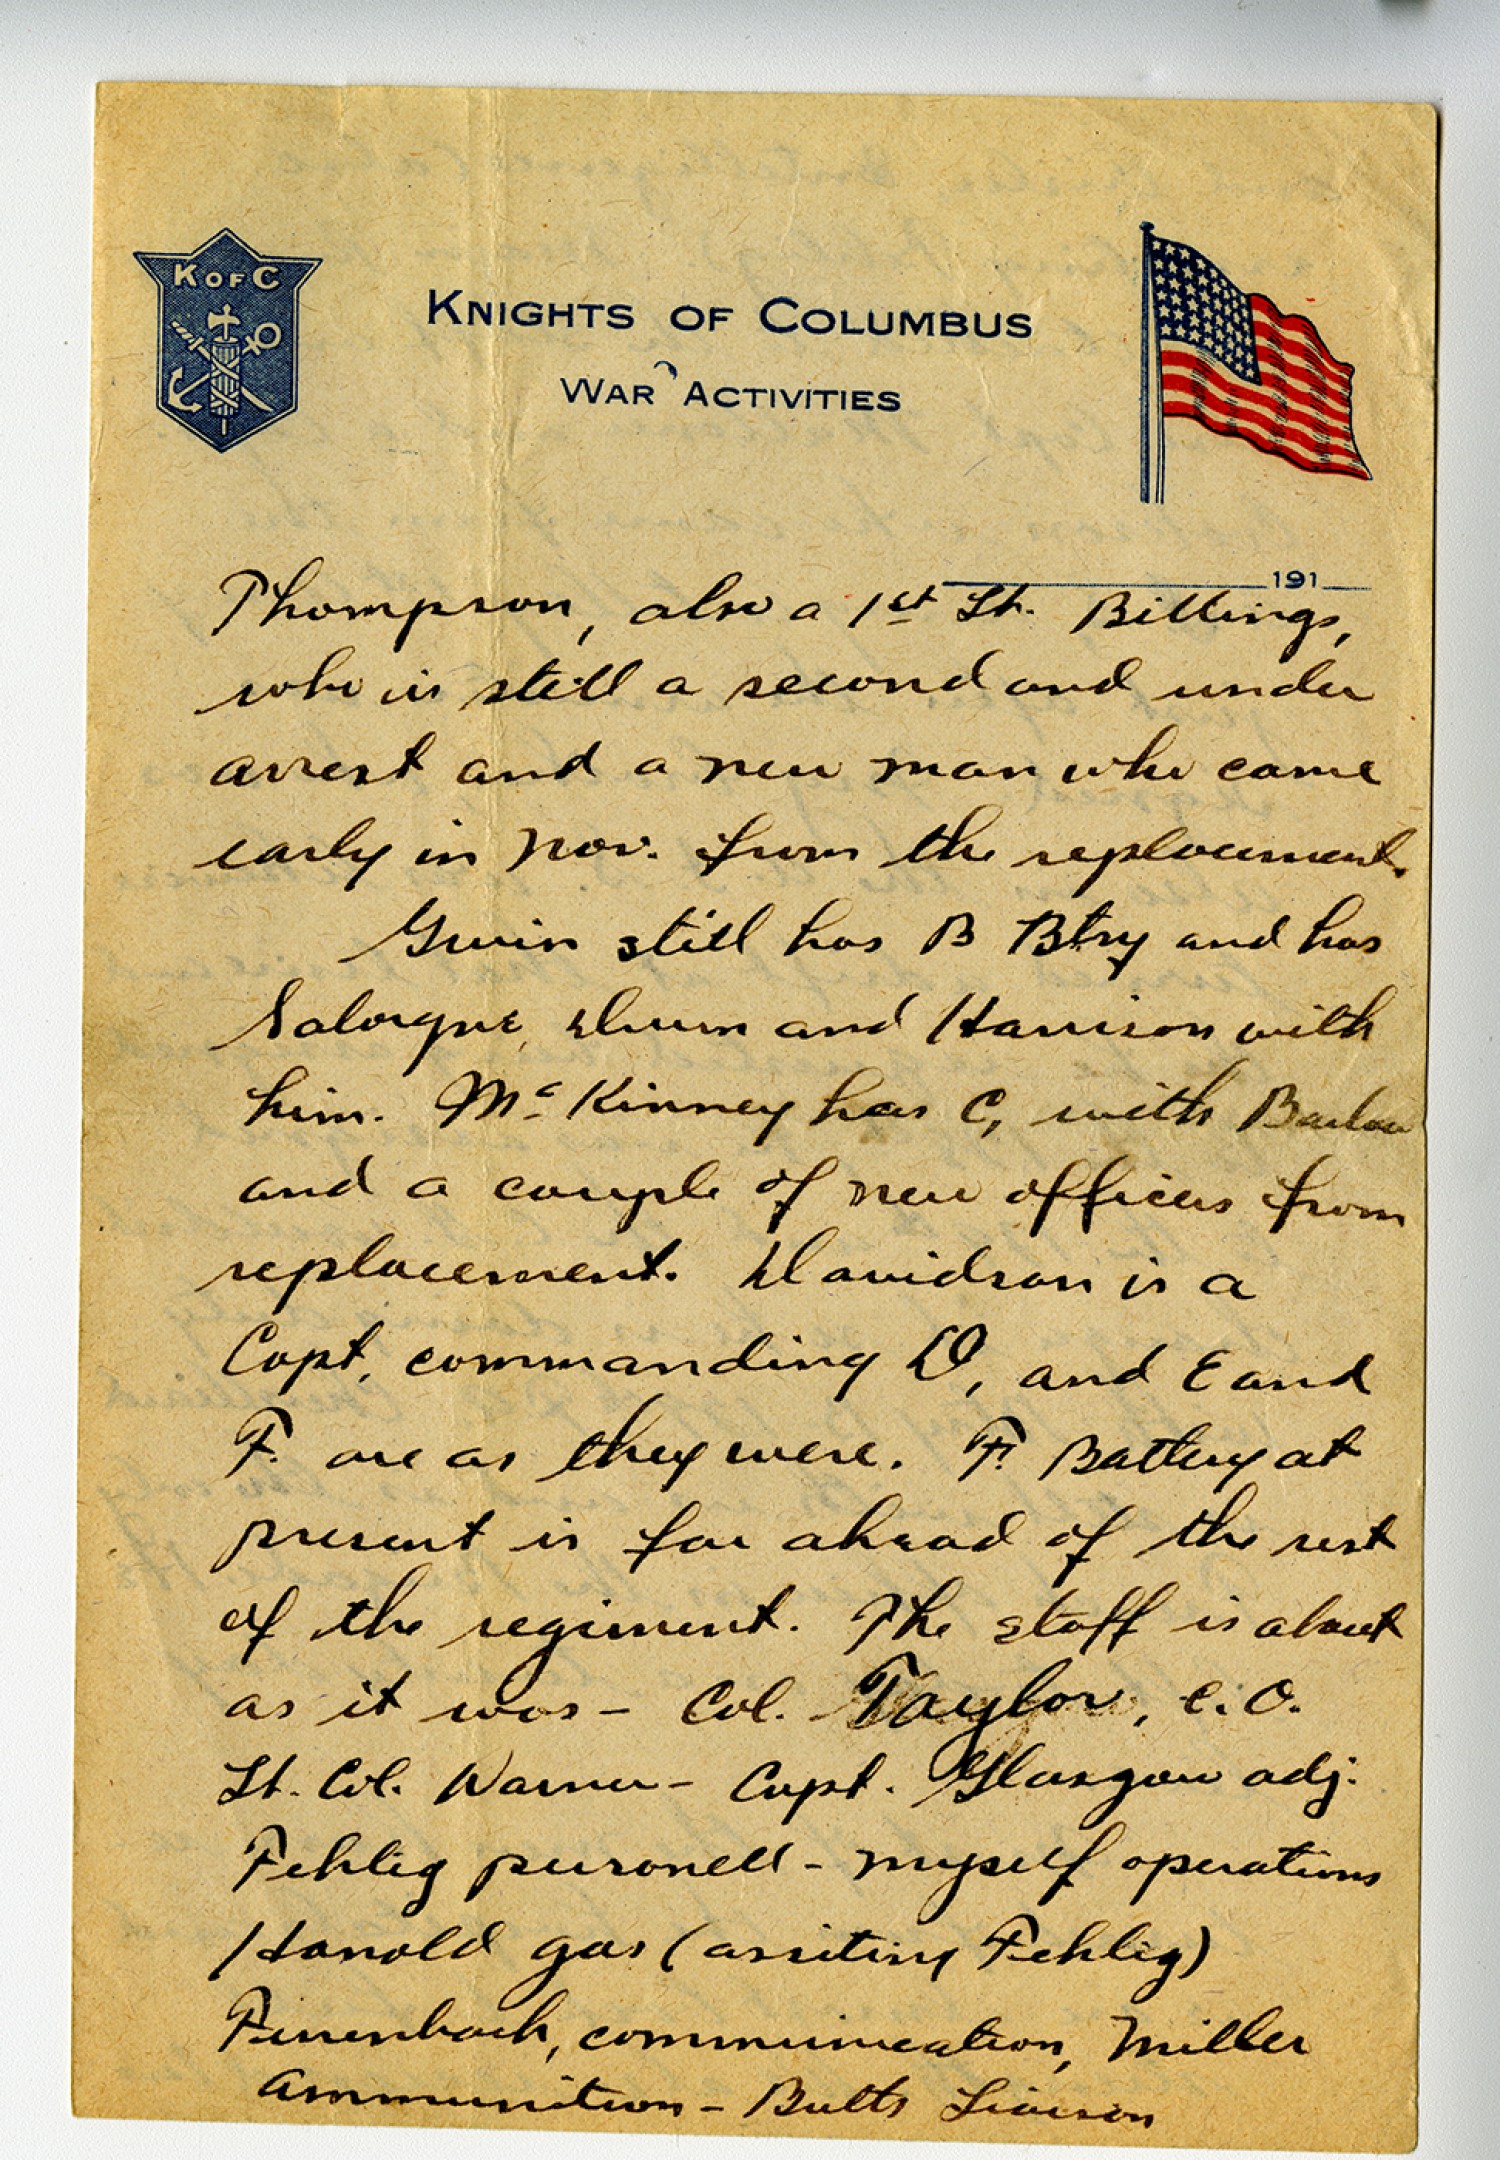 K of C
KNIGHTS OF COLUMBUS
WAR ACTIVITIES
191
Thompson, also a 1st Lt. Billings,
who is still a second and under
arrest and a new man who came
early in Nov. from the replacement.
Gwin still has B Btry and has
Dunn and Harrison with
him. McKinney has C, with Barlow
and a couple of new officers from
replacement. Davidson is a
Capt, commanding D, and E and
F. are as they were. F. Battery at
present is far ahead of the rest
of the regiment. The staff is about
as it was – Col. Taylor, C.O.
Lt. Col. Warner – Capt. Glasgow adj.
Fehlig personell – myself operations
Hanold gas (assiting Fehlig)
communication, Miller
ammunition – Butts Liaison